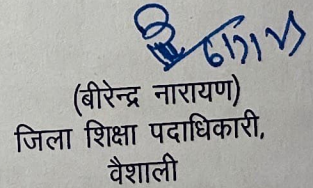 (बीरेन्द्र नारायण)
जिला शिक्षा पदाधिकारी,
वैशाली